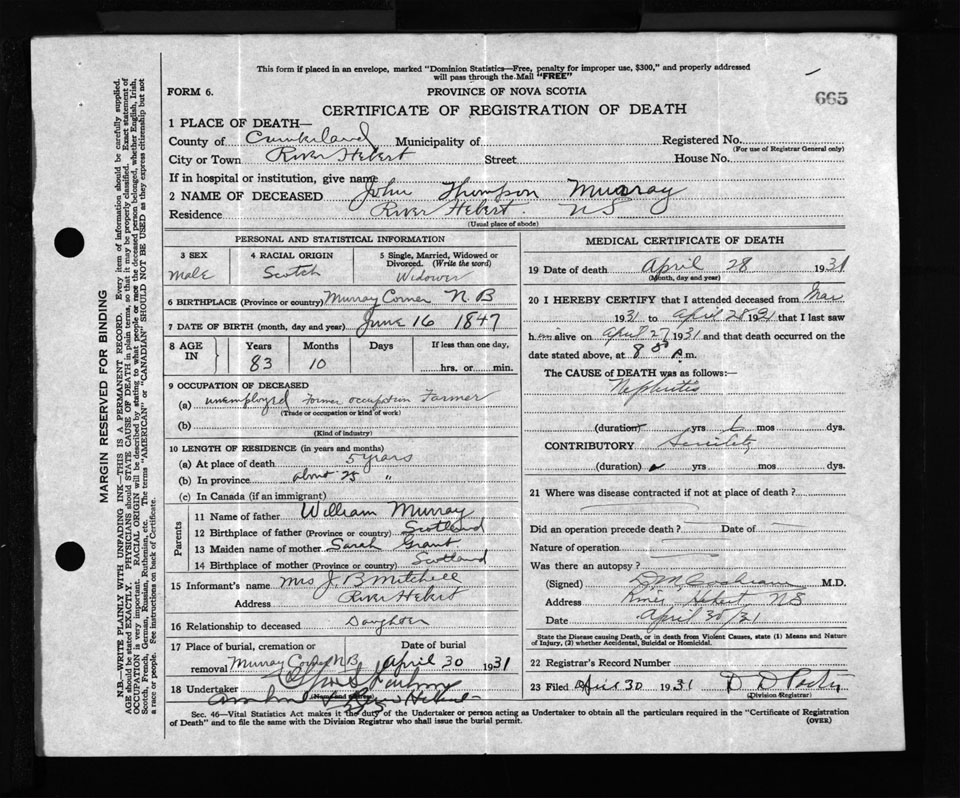 This form if placed in an envelope, marked "Dominion Statistics—Free, penalty for improper use, $300," and properly addressed
will pass through the Mail "FREE"
665
FORM 6.
PROVINCE OF NOVA SCOTIA
CERTIFICATE OF REGISTRATION OF DEATH
1 PLACE OF DEATH—
County of Cumberland Municipality of Registered No.
(For use of Registrar General only)
City or Town River Hebert Street House No.
If in hospital or institution, give name
2 NAME OF DECEASED John Thompson Murray
Residence River Hebert. NS
(Usual place of abode)
PERSONAL AND STATISTICAL INFORMATION
3 SEX
male
4 RACIAL ORIGIN
Scotch
5 Single, Married, Widowed or
Divorced. (Write the word)
Widower
6 BIRTHPLACE (Province or country) Murray Corner N.B
7 DATE OF BIRTH (month, day and year) June 16 1847
8 AGE IN
Years Months Days If less than one day,
83 10 hrs. or min.
9 OCCUPATION OF DECEASED
(a) unemployed former occupation Farmer
(Trade or occupation or kind of work)
(b)
(Kind of industry)
10 LENGTH OF RESIDENCE (in years and months)
(a) At place of death 5 years
(b) In province about 25 "
(c) In Canada (if an immigrant)
Parents
11 Name of father William Murray
12 Birthplace of father (Province or country) Scotland
13 Maiden name of mother Sarah Grant
14 Birthplace of mother (Province or country) Scotland
15 Informant's name Mrs J. B Mitchell
Address River Hebert
16 Relationship to deceased Daughter
17 Place of burial, cremation or Date of burial
removal Murray Corner N.B. April 30 1931
18 Undertaker
(Name and address)
River Hebert
MEDICAL CERTIFICATE OF DEATH
19 Date of death April 28 1931
(Month, day and year)
20 I HEREBY CERTIFY that I attended deceased from Mar
1931 to April 28 1931 that I last saw
h alive on April 27 1931 and that death occurred on the
date stated above, at 8 m.
The CAUSE of DEATH was as follows:—
Nephritis
(duration) yrs mos dys.
CONTRIBUTORY Senility
(duration) yrs mos dys.
21 Where was disease contracted if not at place of death?
Did an operation precede death? Date of
Nature of operation
Was there an autopsy?
(Signed) D M Cochrane M.D.
Address River Hebert NS
Date April 30/31
State the Disease causing Death, or in death from Violent Causes, state (1) Means and Nature
of Injury, (2) whether Accidental, Suicidal or Homicidal.
22 Registrar's Record Number
23 Filed April 30 1931 D D
(Division Registrar)
Sec. 46—Vital Statistics Act makes it the duty of the Undertaker or person acting as Undertaker to obtain all the particulars required in the "Certificate of Registration
of Death" and to file the same with the Division Registrar who shall issue the burial permit.
(OVER)
MARGIN RESERVED FOR BINDING
N.B.—WRITE PLAINLY WITH UNFADING INK—THIS IS A PERMANENT RECORD. Every item of information should be carefully supplied.
AGE should be stated EXACTLY. PHYSICIANS should STATE CAUSE OF DEATH in plain terms, so that it may be properly classified. Exact statement of
OCCUPATION is very important. RACIAL ORIGIN will be described by stating to what people or race the deceased person belonged, whether English, Irish,
Scotch, French, German, Russian, Ruthenian, etc. The terms "AMERICAN" or "CANADIAN" SHOULD NOT BE USED as they express citizenship but not
a race or people. See instructions on back of Certificate.